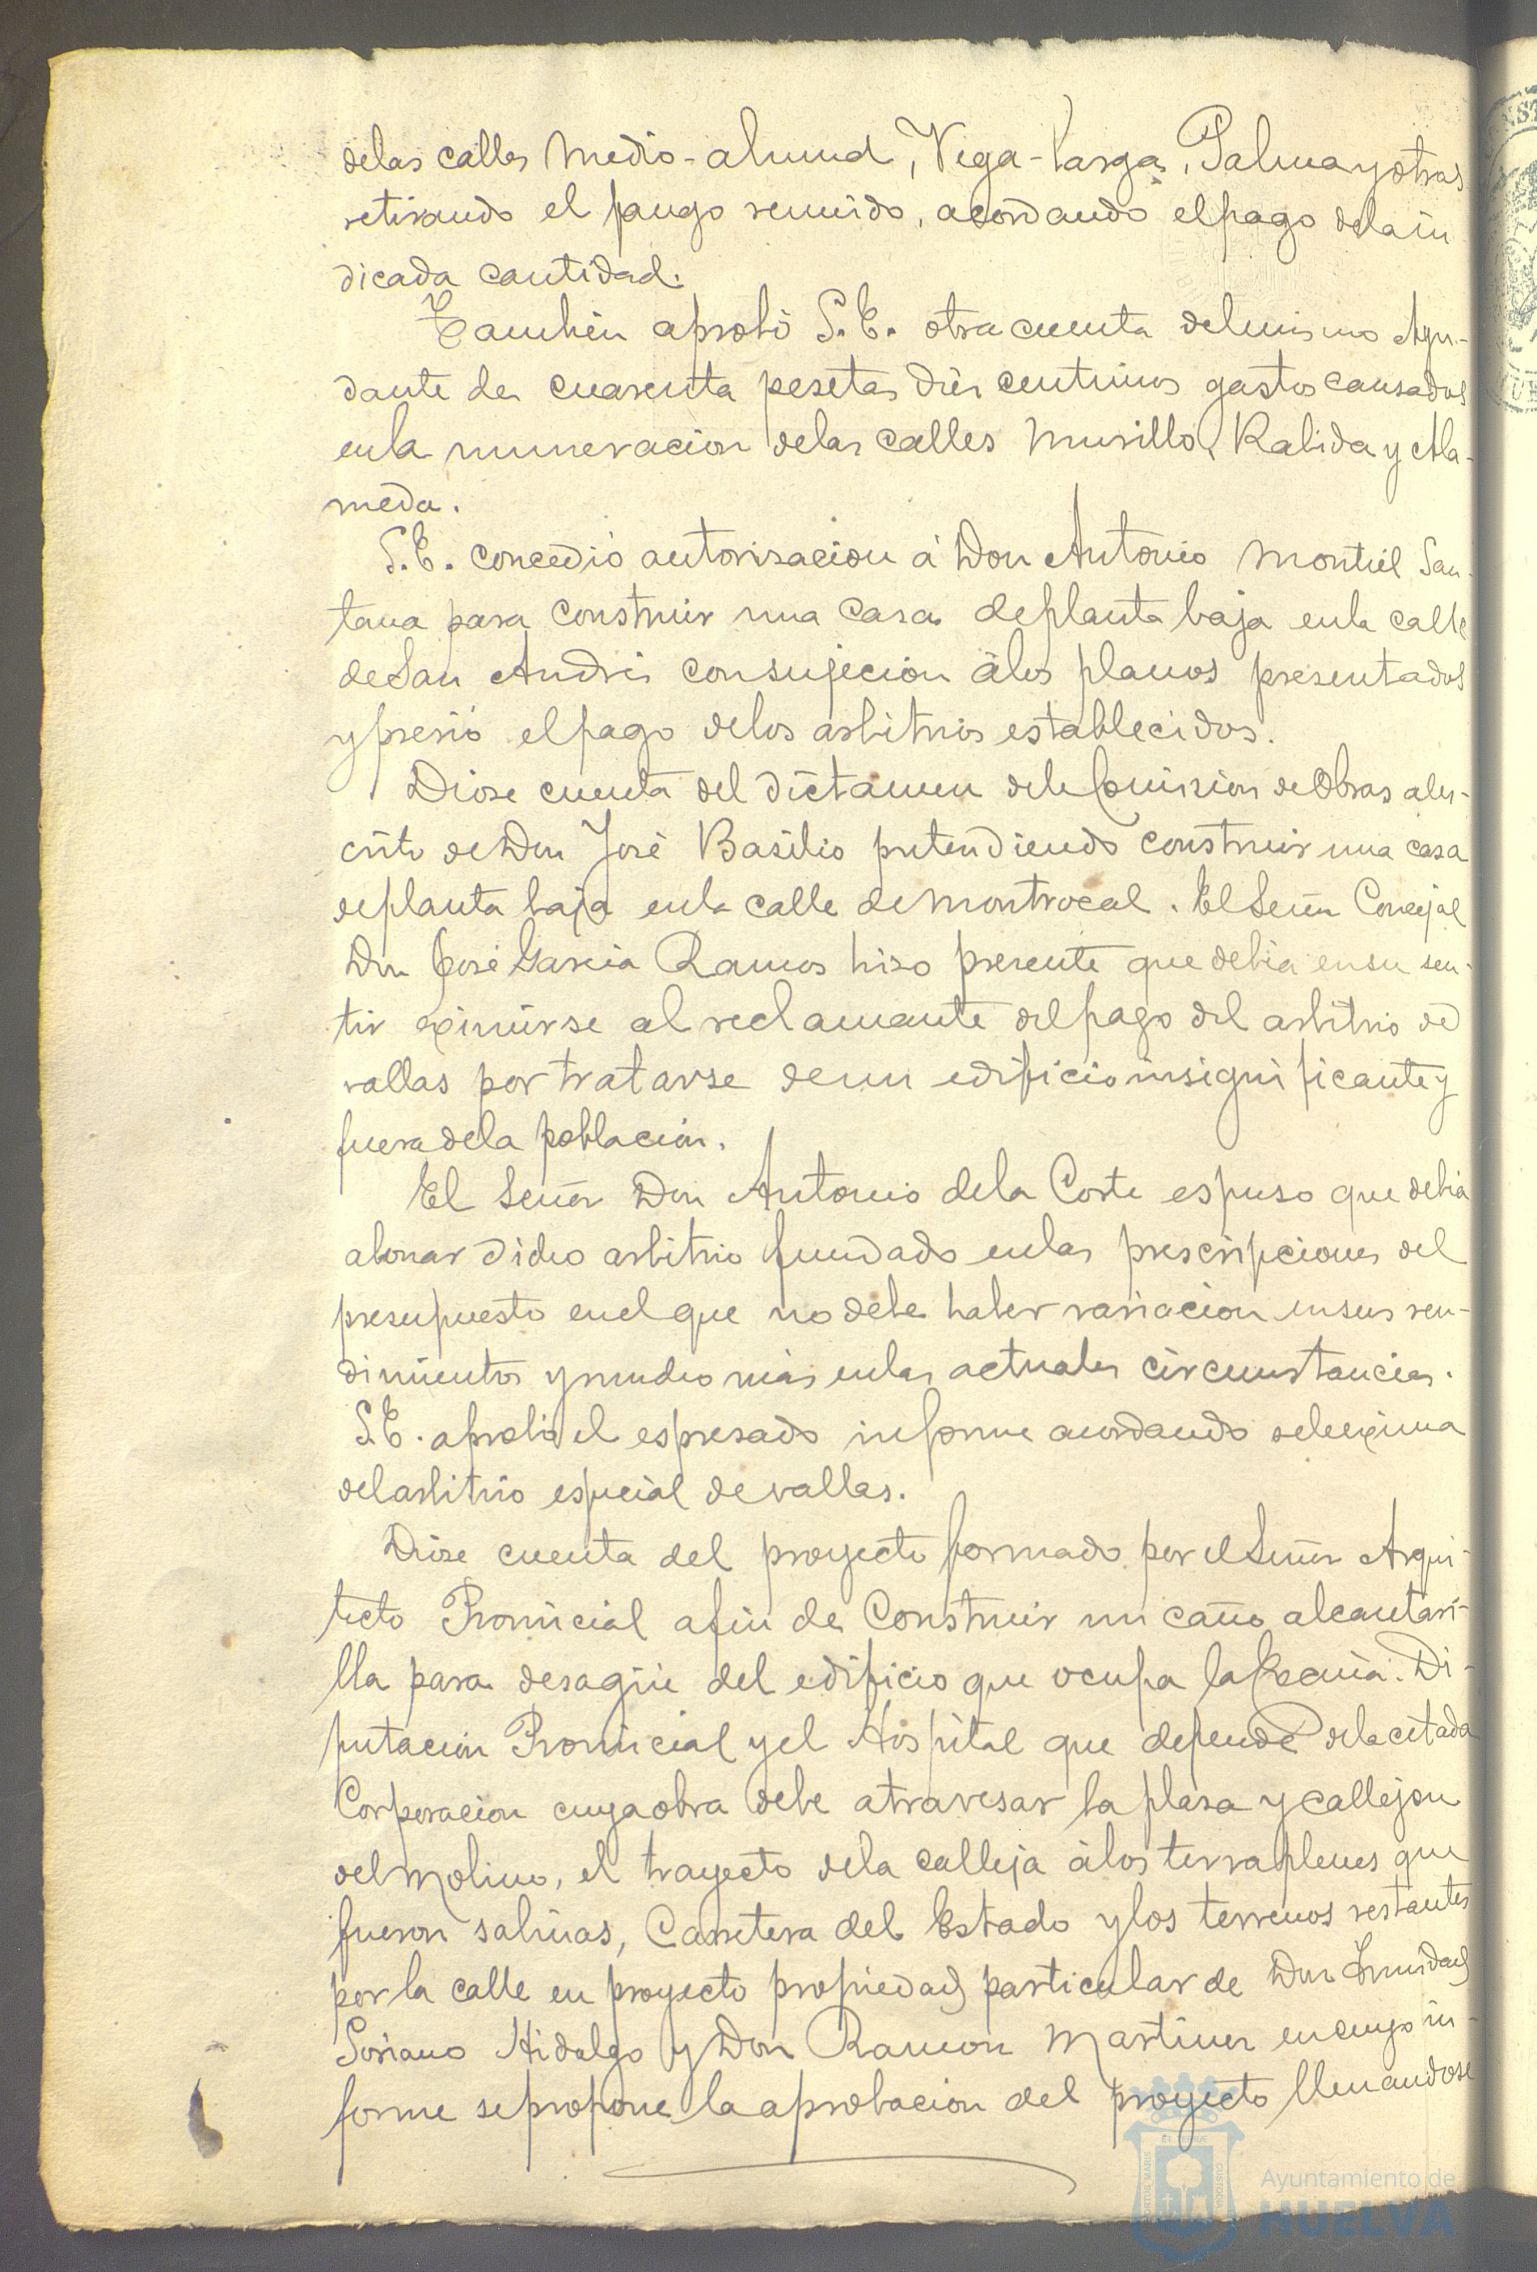 delas calles Medio-almud, Vega-larga, Palma y otras
retirando el fango reunido, acordando el pago dela in
dicada cantidad.
Tambien aprobó S.E. otra cuenta del mismo Ayu-
dante de cuarenta pesetas diez centimos gastos causados
enla numeracion delas calles Murillo, Rabida y Ala-
meda.
S.E. concedió autorisacion á Don Antonio Montiel San-
tana para construir una casa de planta baja enla calle
de San Andrés con sujecion álos planos presentados
y previo el pago delos arbitrios establecidos.
Diose cuenta del dictamen dela Comision de Obras al es-
crito de Don José Basilio pretendiendo construir una casa
de planta baja enla calle de Montrocal. El Señor Concejal
Don José Garcia Ramos hizo presente que debia en su sen-
tir eximirse al reclamante del pago del arbitrio de
vallas por tratarse de un edificio insignificante y
fuera dela poblacion.
El Señor Don Antonio dela Corte espuso que debia
abonar dicho arbitrio fundado enlas prescripciones del
presupuesto en el que no debe haber variacion en sus ren-
dimientos y mucho más enlas actuales circunstancias.
S.E. aprobó el espresado informe acordando se le exima
del arbitrio especial de vallas.
Diose cuenta del proyecto formado por el Señor Arqui-
tecto Provincial a fin de Construir un caño alcantari-
lla para desagüe del edificio que ocupa la Excma. Di-
putacion Provincial y el Hospital que depende dela citada
Corporacion cuya obra debe atravesar la plaza y callejon
del Molino, el trayecto dela calleja álos terraplenes que
fueron salinas, Carretera del Estado y los terrenos restantes
por la calle en proyecto propiedad particular de Don Trinidad
Soriano Hidalgo y Don Ramon Martinez en cuyo in-
forme se propone la aprobacion del proyecto llenandose
Ayuntamiento de
HUELVA